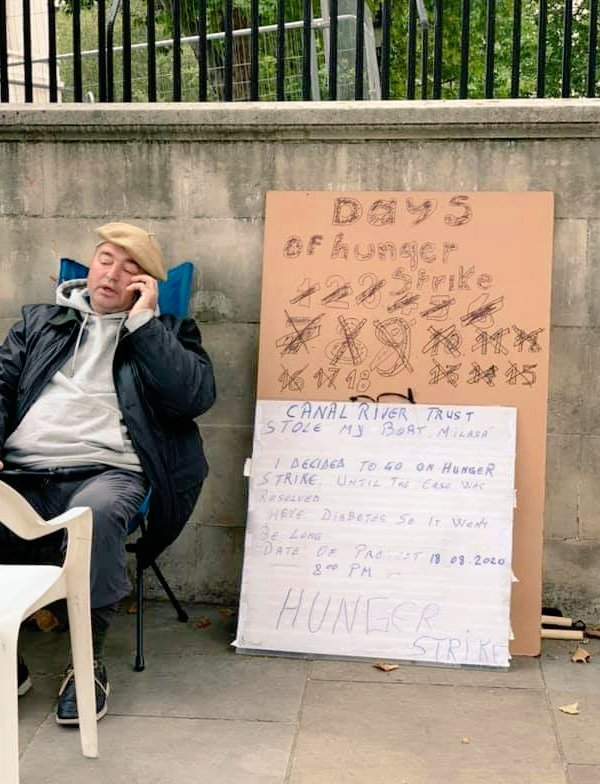 Days
Of hunger
Strike
1 2 3 4 5 6
7 8 9 10 11 12
16 17 18 13 14 15
CANAL RIVER TRUST
STOLE MY BOAT MILASA
I DECIDED TO GO ON HUNGER
STRIKE. UNTIL THE CASE WAS
RESOLVED
HAVE DIABETES SO IT WON'T
BE LONG
DATE OF PROTEST 18 08.2020
8 00 PM
HUNGER
STRIKE